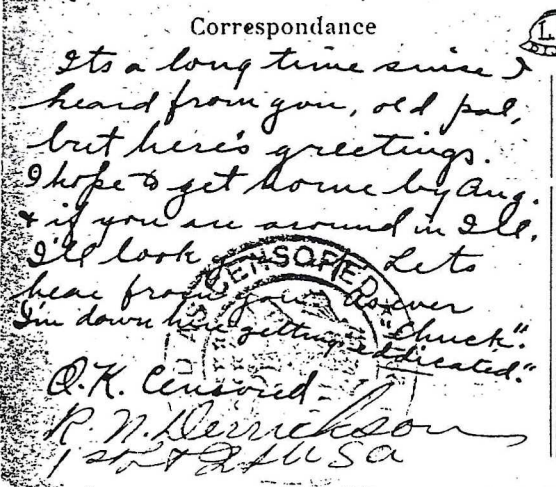 Correspondance
Its a long time since I
heard from you, old pal,
but here's greetings.
I hope to get home by Aug.
& if you are around in Ill.
I'll look Lets
hear from you. As ever
"Chuck".
I'm down here getting "eddicated."
O.K. Censored.
R. N. Derrickson
1st Lt USA
CENSORED
L